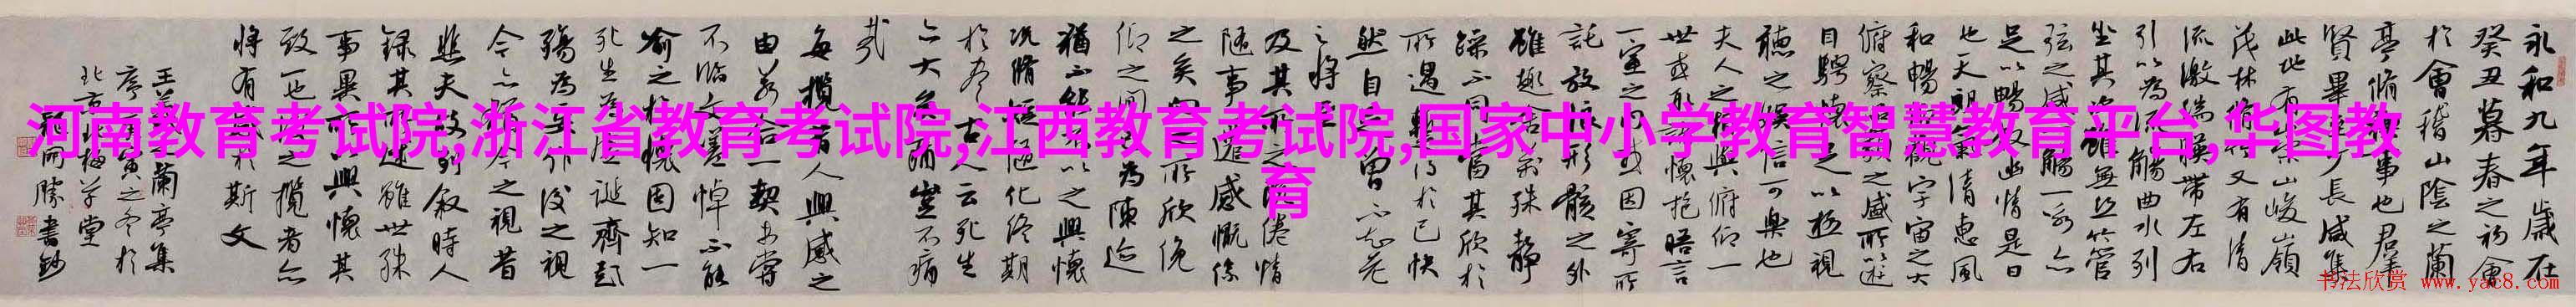 永和九年歲在
癸丑暮春之初會
於會稽山陰之蘭
亭脩禊事也群
賢畢至少長咸集
此地有崇山峻嶺
茂林脩竹又有清
流激湍映帶左右
引以為流觴曲水列
坐其次雖無絲竹管
弦之盛一觴一詠亦
足以暢敘幽情是日
也天朗氣清惠風
和暢仰觀宇宙之大
俯察品類之盛所以遊
目騁懷足以極視
聽之娛信可樂也
夫人之相與俯仰一
世或取諸懷抱晤言
一室之內或因寄所
託放浪形骸之外
雖趣舍萬殊靜
躁不同當其欣於
所遇暫得於己快
然自足曾不知老
之將至
及其所之既倦情
隨事遷感慨係
之矣向之所欣俛
仰之間以為陳迹
猶不能不以之興懷
況脩短隨化終期
於盡古人云死生
亦大矣豈不痛
哉
每攬昔人興感之
由若合一契未嘗
不臨文嗟悼不能
喻之於懷固知一
死生為虛誕齊彭
殤為妄作後之視
今亦猶今之視昔
悲夫故列敘時人
錄其所述雖世殊
事異所以興懷其
致一也後之攬者亦
將有感於斯文
王羲之蘭亭集
序庚寅之冬於
北京梅草堂
勝書鈔
河南教育考试院,浙江省教育考试院,江西教育考试院,国家中小学教育智慧教育平台,华图教
育
书法欣赏 www.yac8.com